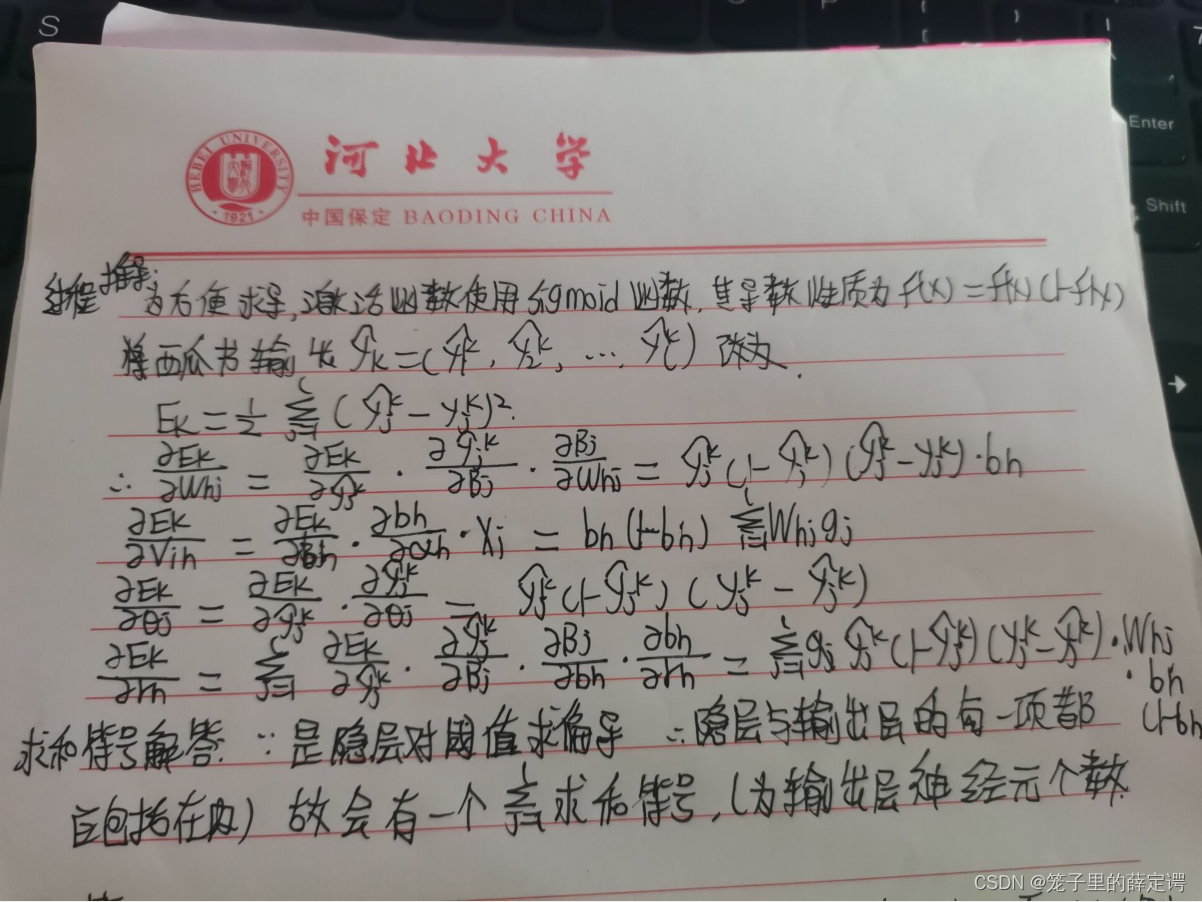 S
P
Enter
Shift
HEBEI UNIVERSITY
1921
河北大学
中国保定 BAODING CHINA
过程推导:
为方便求导,激活函数使用sigmoid函数,其导数性质为 f'(x)=f(x)(1-f(x))
将西瓜书输出 ŷk=(ŷ1^k, ŷ2^k, … ŷl^k) 改为.
Ek=1/2 Σ_{j=1}^{l}(ŷj^k-yj^k)².
∴ ∂Ek/∂Whj = ∂Ek/∂ŷj^k · ∂ŷj^k/∂Bj · ∂Bj/∂Whj = ŷj^k(1-ŷj^k)(ŷj^k-yj^k)·bh
∂Ek/∂Vih = ∂Ek/∂Bh · ∂bh/∂αh · Xi = bh(1-bh) Σ_{j=1}^{l} Whj gj
∂Ek/∂θj = ∂Ek/∂ŷj^k · ∂ŷj^k/∂θj = ŷj^k(1-ŷj^k)(yj^k-ŷj^k)
∂Ek/∂rh = Σ_{j=1}^{l} ∂Ek/∂ŷj^k · ∂ŷj^k/∂Bj · ∂Bj/∂bh · ∂bh/∂rh = Σ_{j=1}^{l} gj ŷj^k(1-ŷj^k)(yj^k-ŷj^k)·Whj
·bh
(1-bh
求和符号解答. ∵是隐层对阈值求偏导 ∴隐层与输出层的每一项都
包括在内) 故会有一个 Σ_{j=1}^{l} 求和符号, l为输出层神经元个数.
CSDN @笼子里的薛定谔